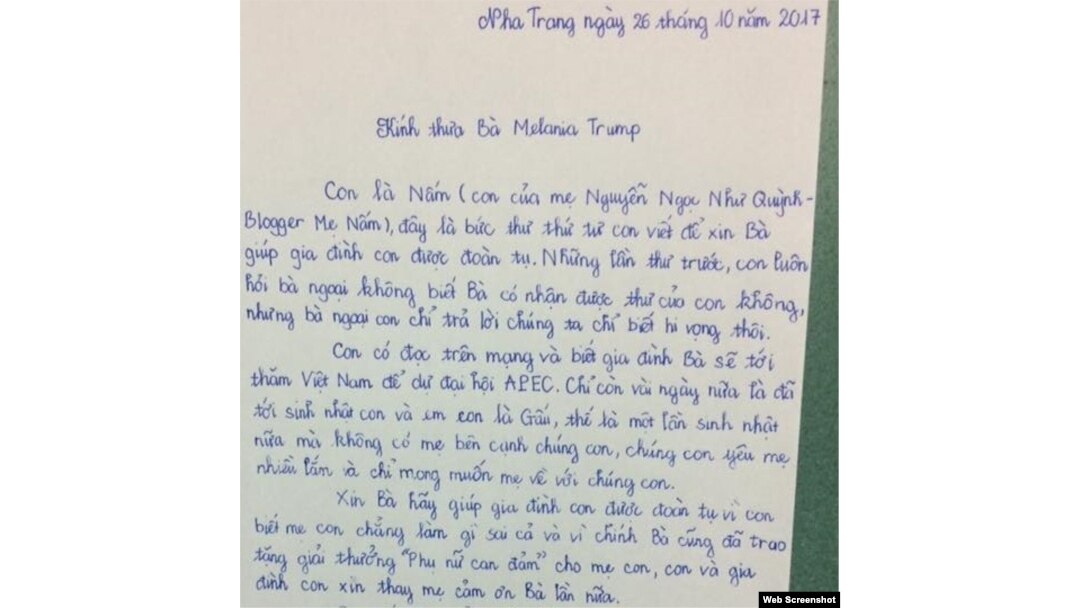 Nha Trang ngày 26 tháng 10 năm 2017
Kính thưa Bà Melania Trump
Con là Nấm (con của mẹ Nguyễn Ngọc Như Quỳnh-
Blogger Mẹ Nấm), đây là bức thư thứ tư con viết để xin Bà
giúp gia đình con được đoàn tụ. Những lần thư trước, con luôn
hỏi bà ngoại không biết Bà có nhận được thư của con không,
nhưng bà ngoại con chỉ trả lời chúng ta chỉ biết hi vọng thôi.
Con có đọc trên mạng và biết gia đình Bà sẽ tới
thăm Việt Nam để dự đại hội APEC. Chỉ còn vài ngày nữa là đã
tới sinh nhật con và em con là Gấu, thế là một lần sinh nhật
nữa mà không có mẹ bên cạnh chúng con, chúng con yêu mẹ
nhiều lắm và chỉ mong muốn mẹ về với chúng con.
Xin Bà hãy giúp gia đình con được đoàn tụ vì con
biết mẹ con chẳng làm gì sai cả và vì chính Bà cũng đã trao
tặng giải thưởng "Phụ nữ can đảm" cho mẹ con, con và gia
đình con xin thay mẹ cảm ơn Bà lần nữa.
Web Screenshot